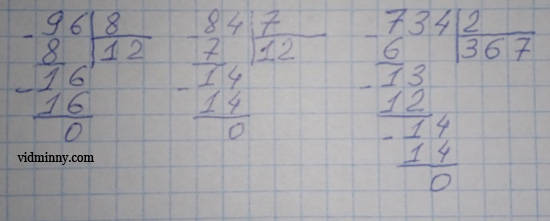 -96|8
8|12
-16
16
0
-84|7
7|12
-14
14
0
-734|2
6|367
-13
12
-14
14
0
vidminny.com